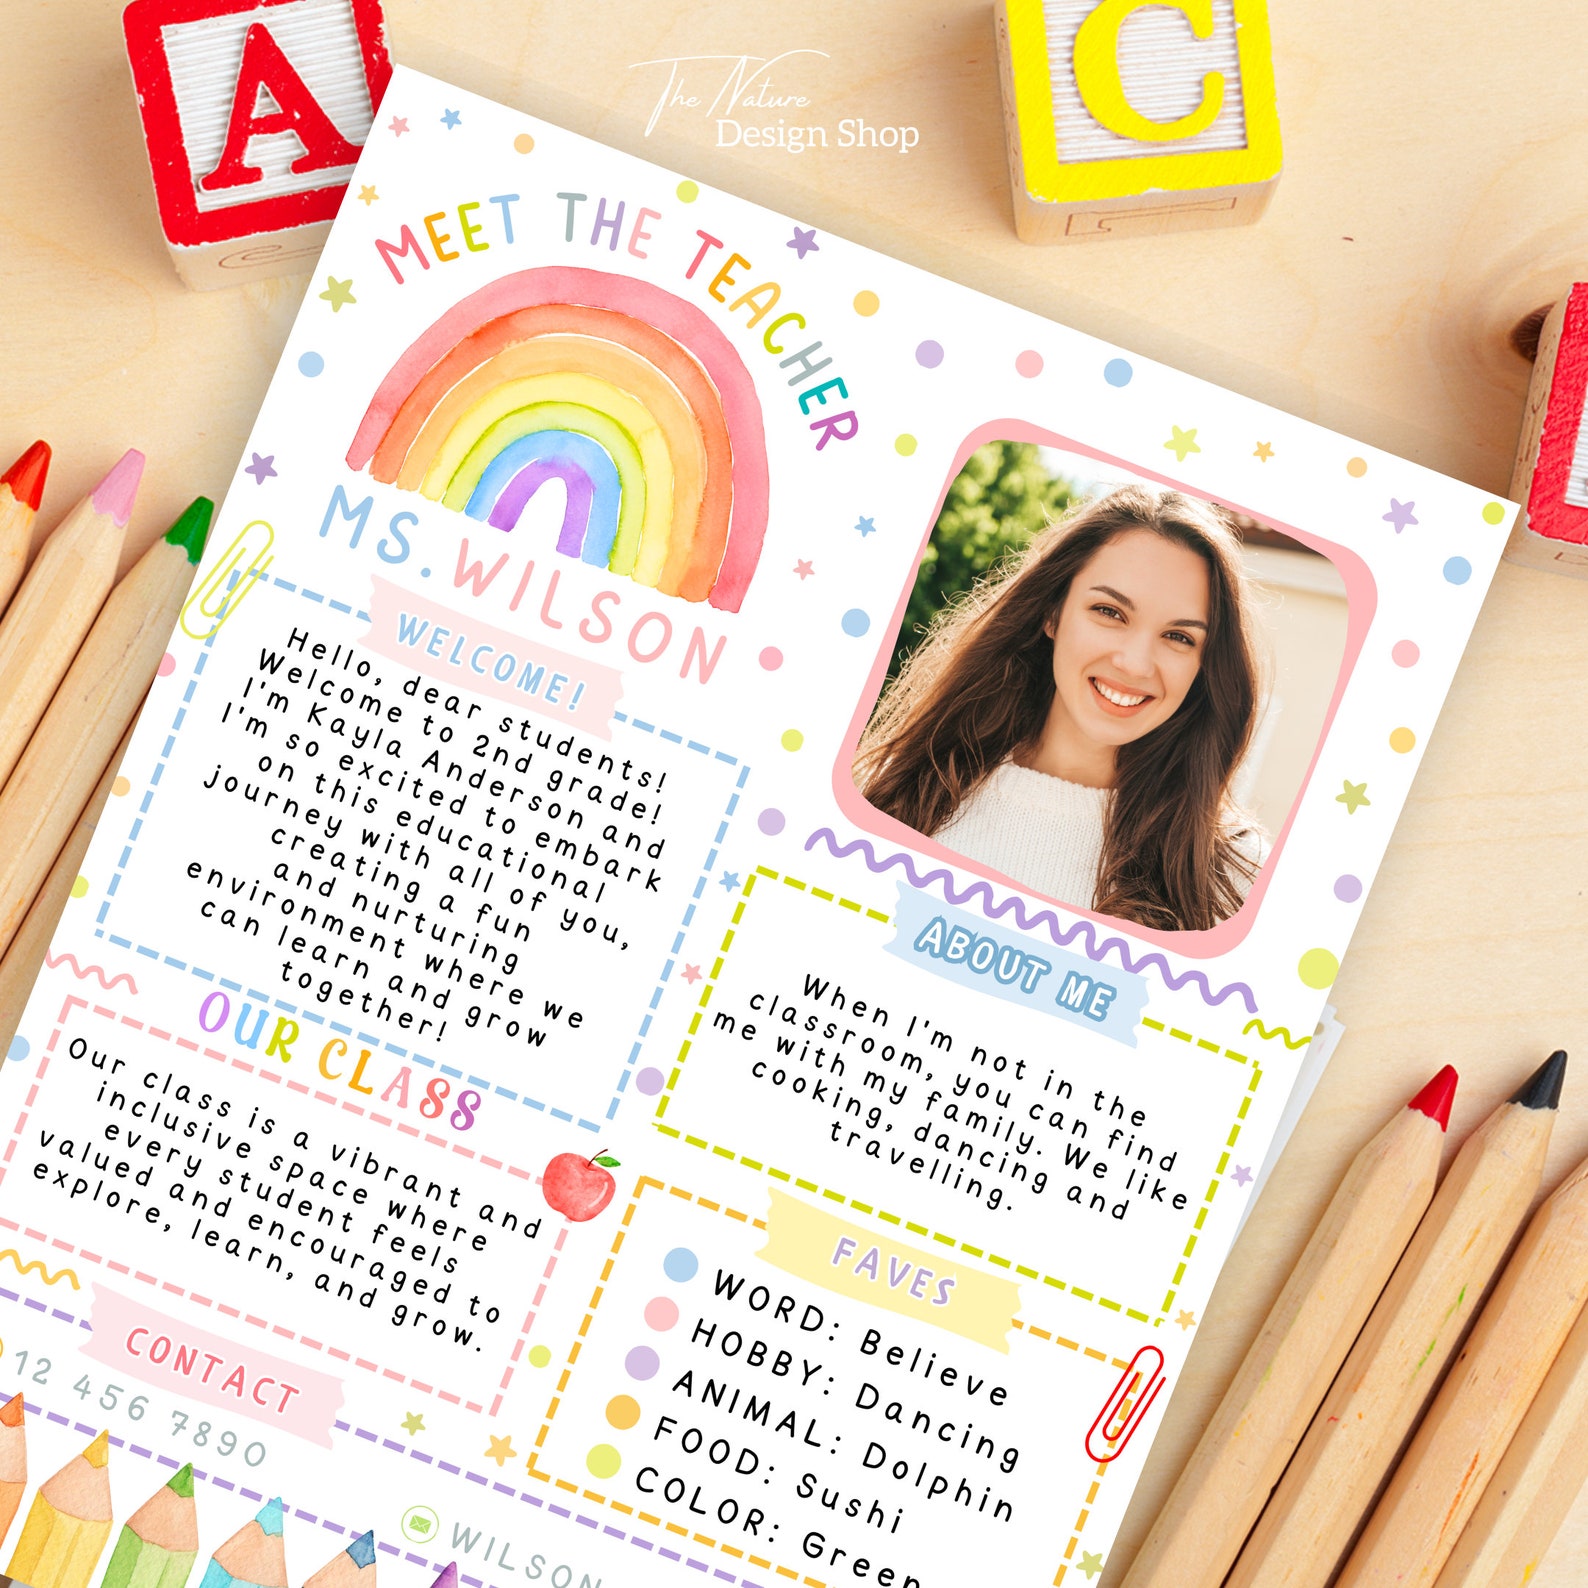 A
C
The Nature
Design Shop
MEET THE TEACHER
MS. WILSON
WELCOME!
Hello, dear students!
Welcome to 2nd grade!
I'm Kayla Anderson and
I'm so excited to embark
on this educational
journey with all of you,
creating a fun
and nurturing
environment where we
can learn and grow
together!
OUR CLASS
Our class is a vibrant and
inclusive space where
every student feels
valued and encouraged to
explore, learn, and grow.
CONTACT
12 456 7890
WILSON
ABOUT ME
When I'm not in the
classroom, you can find
me with my family. We like
cooking, dancing and
travelling.
FAVES
WORD: Believe
HOBBY: Dancing
ANIMAL: Dolphin
FOOD: Sushi
COLOR: Green